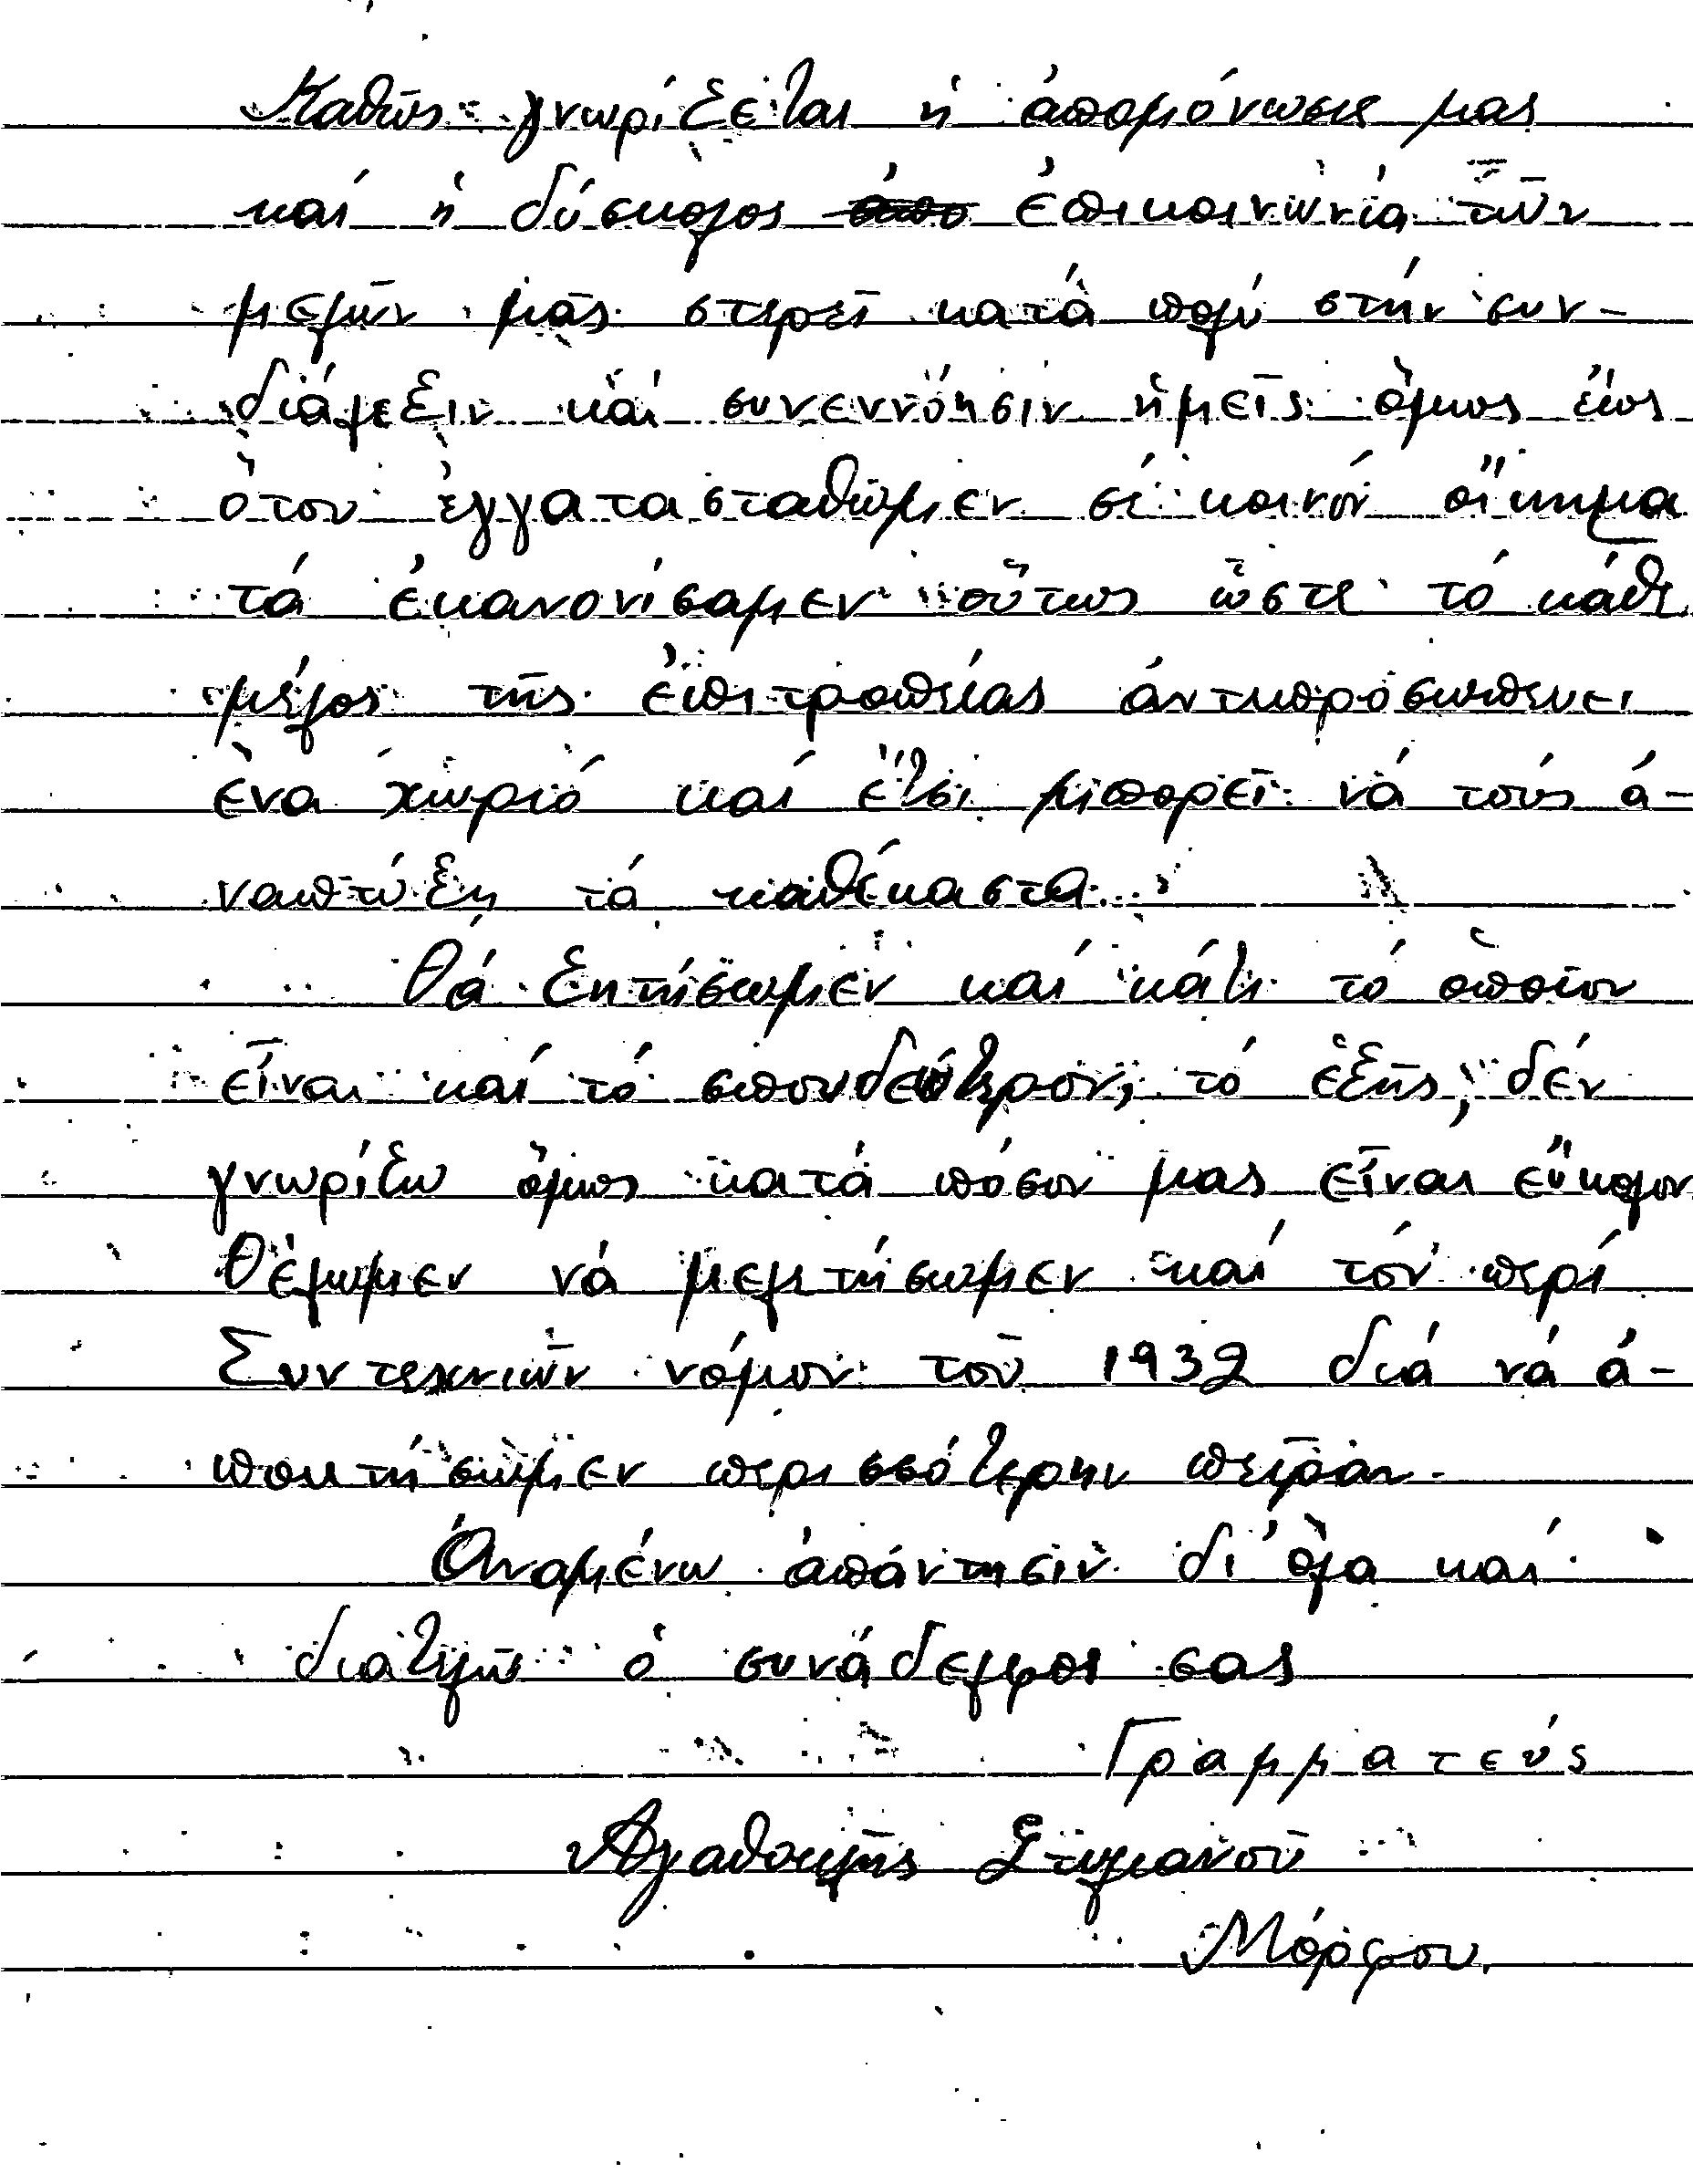 Καθῶς γνωρίζεται ἡ ἀπομόνωσις μας
καί ἡ δύσκολος ἐπικοινωνία τῶν
μελῶν μᾶς στερεῖ κατά πολύ στήν συν-
διάλεξιν καί συνεννόησιν ἡμεῖς ὅμως ἕως
ὅτου ἐγγατασταθῶμεν σέ κοινόν οἴκημα
τά ἐκανονίσαμεν οὕτως ὥστε τό κάθε
μέλος τῆς ἐπιτροπείας ἀντιπροσωπευει
ἕνα χωριό καί ἔτσι μπορεῖ νά τούς ἀ-
ναπτύξη τά καθέκαστα.
Θά ζητήσωμεν καί κάτι τό ὁποῖον
εἶναι καί τό σπουδεότερον, τό ἑξῆς, δέν
γνωρίζω ὅμως κατά πόσον μας εἶναι εὔκολον
Θέλωμεν νά μελετήσωμεν καί τόν περί
Συντεχνιῶν νόμον τοῦ 1932 διά νά ἀ-
ποκτήσωμεν περισσότερην πεῖραν.
Ἀναμένω ἀπάντησιν δι' ὅλα καί
διατελῶ ὁ συνάδελφος σας
Γραμματεύς
Ἀγαθοκλῆς Στυλιανοῦ
Μόρφου.